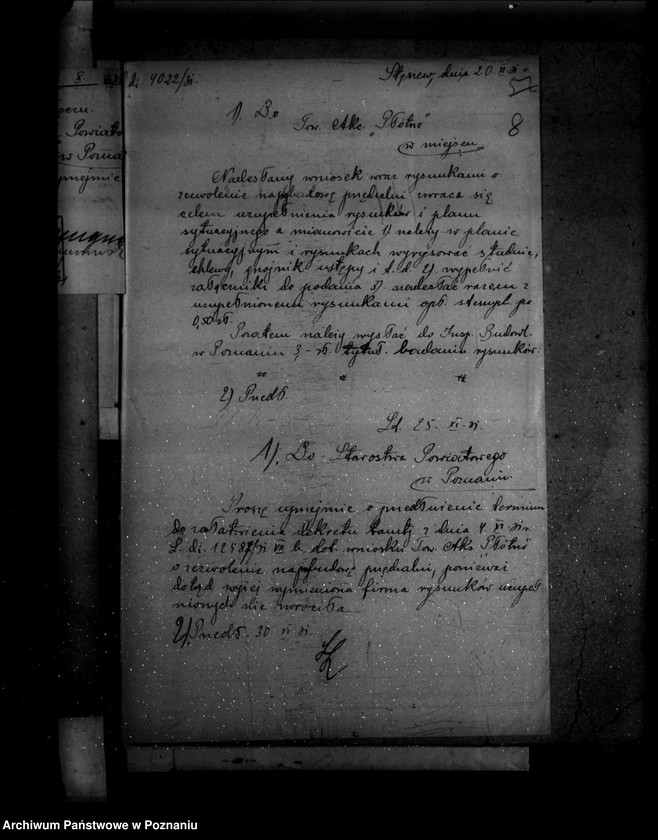 L. dz. 4022/31.
Stęszew, dnia 20. XI 31 r.
8
1/. Do
Tow. Akc. „Płótno"
w miejscu
Nadesłany wniosek wraz rysunkami o
zezwolenie na budowę przędzalni zwraca się
celem uzupełnienia rysunków i planu
sytuacyjnego a mianowicie 1/ należy w planie
sytuacyjnym i rysunkach wyrysować studnię,
chlewy, gnojnik ustępy i t. d. 2/ wypełnić
załączniki do podania 3/. nadesłać razem z
uzupełnionemi rysunkami opł. stempl. po
0,50 zł.
Pozatem należy wysłać do Insp. Budowl.
w Poznaniu 3,- zł. tytuł. badania rysunków.
2) Przedł.
25. XI. 31.
1/. Do Starostwa Powiatowego
w Poznaniu
Proszę uprzejmie o przedłużenie terminu
do załatwienia dekretu tamtej. z dnia 4. XI 31 r.
L. dz. 12587/31 VII b. dot. wniosku Tow. Akc. Płótno
o zezwolenie na budowę przędzalni, ponieważ
dotąd wyżej wymieniona firma rysunków uzupeł
nionych nie zwróciła
2/. Przedł. 30 XI 31.
X.
Powiato
w Pozna
uprzejmie
Archiwum Państwowe w Poznaniu